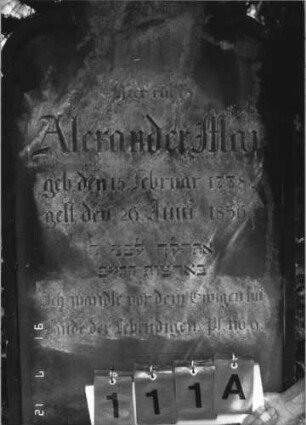 Hier ruht
Alexander May
geb. den 15. Februar 1778
gest. den 26. Juni 1856
אתהלך לפני ד׳
בארצות החיים
Ich wandle vor dem Ewigen im
Lande der Lebendigen. Ps. 116, 9.
111A
21 7 '91